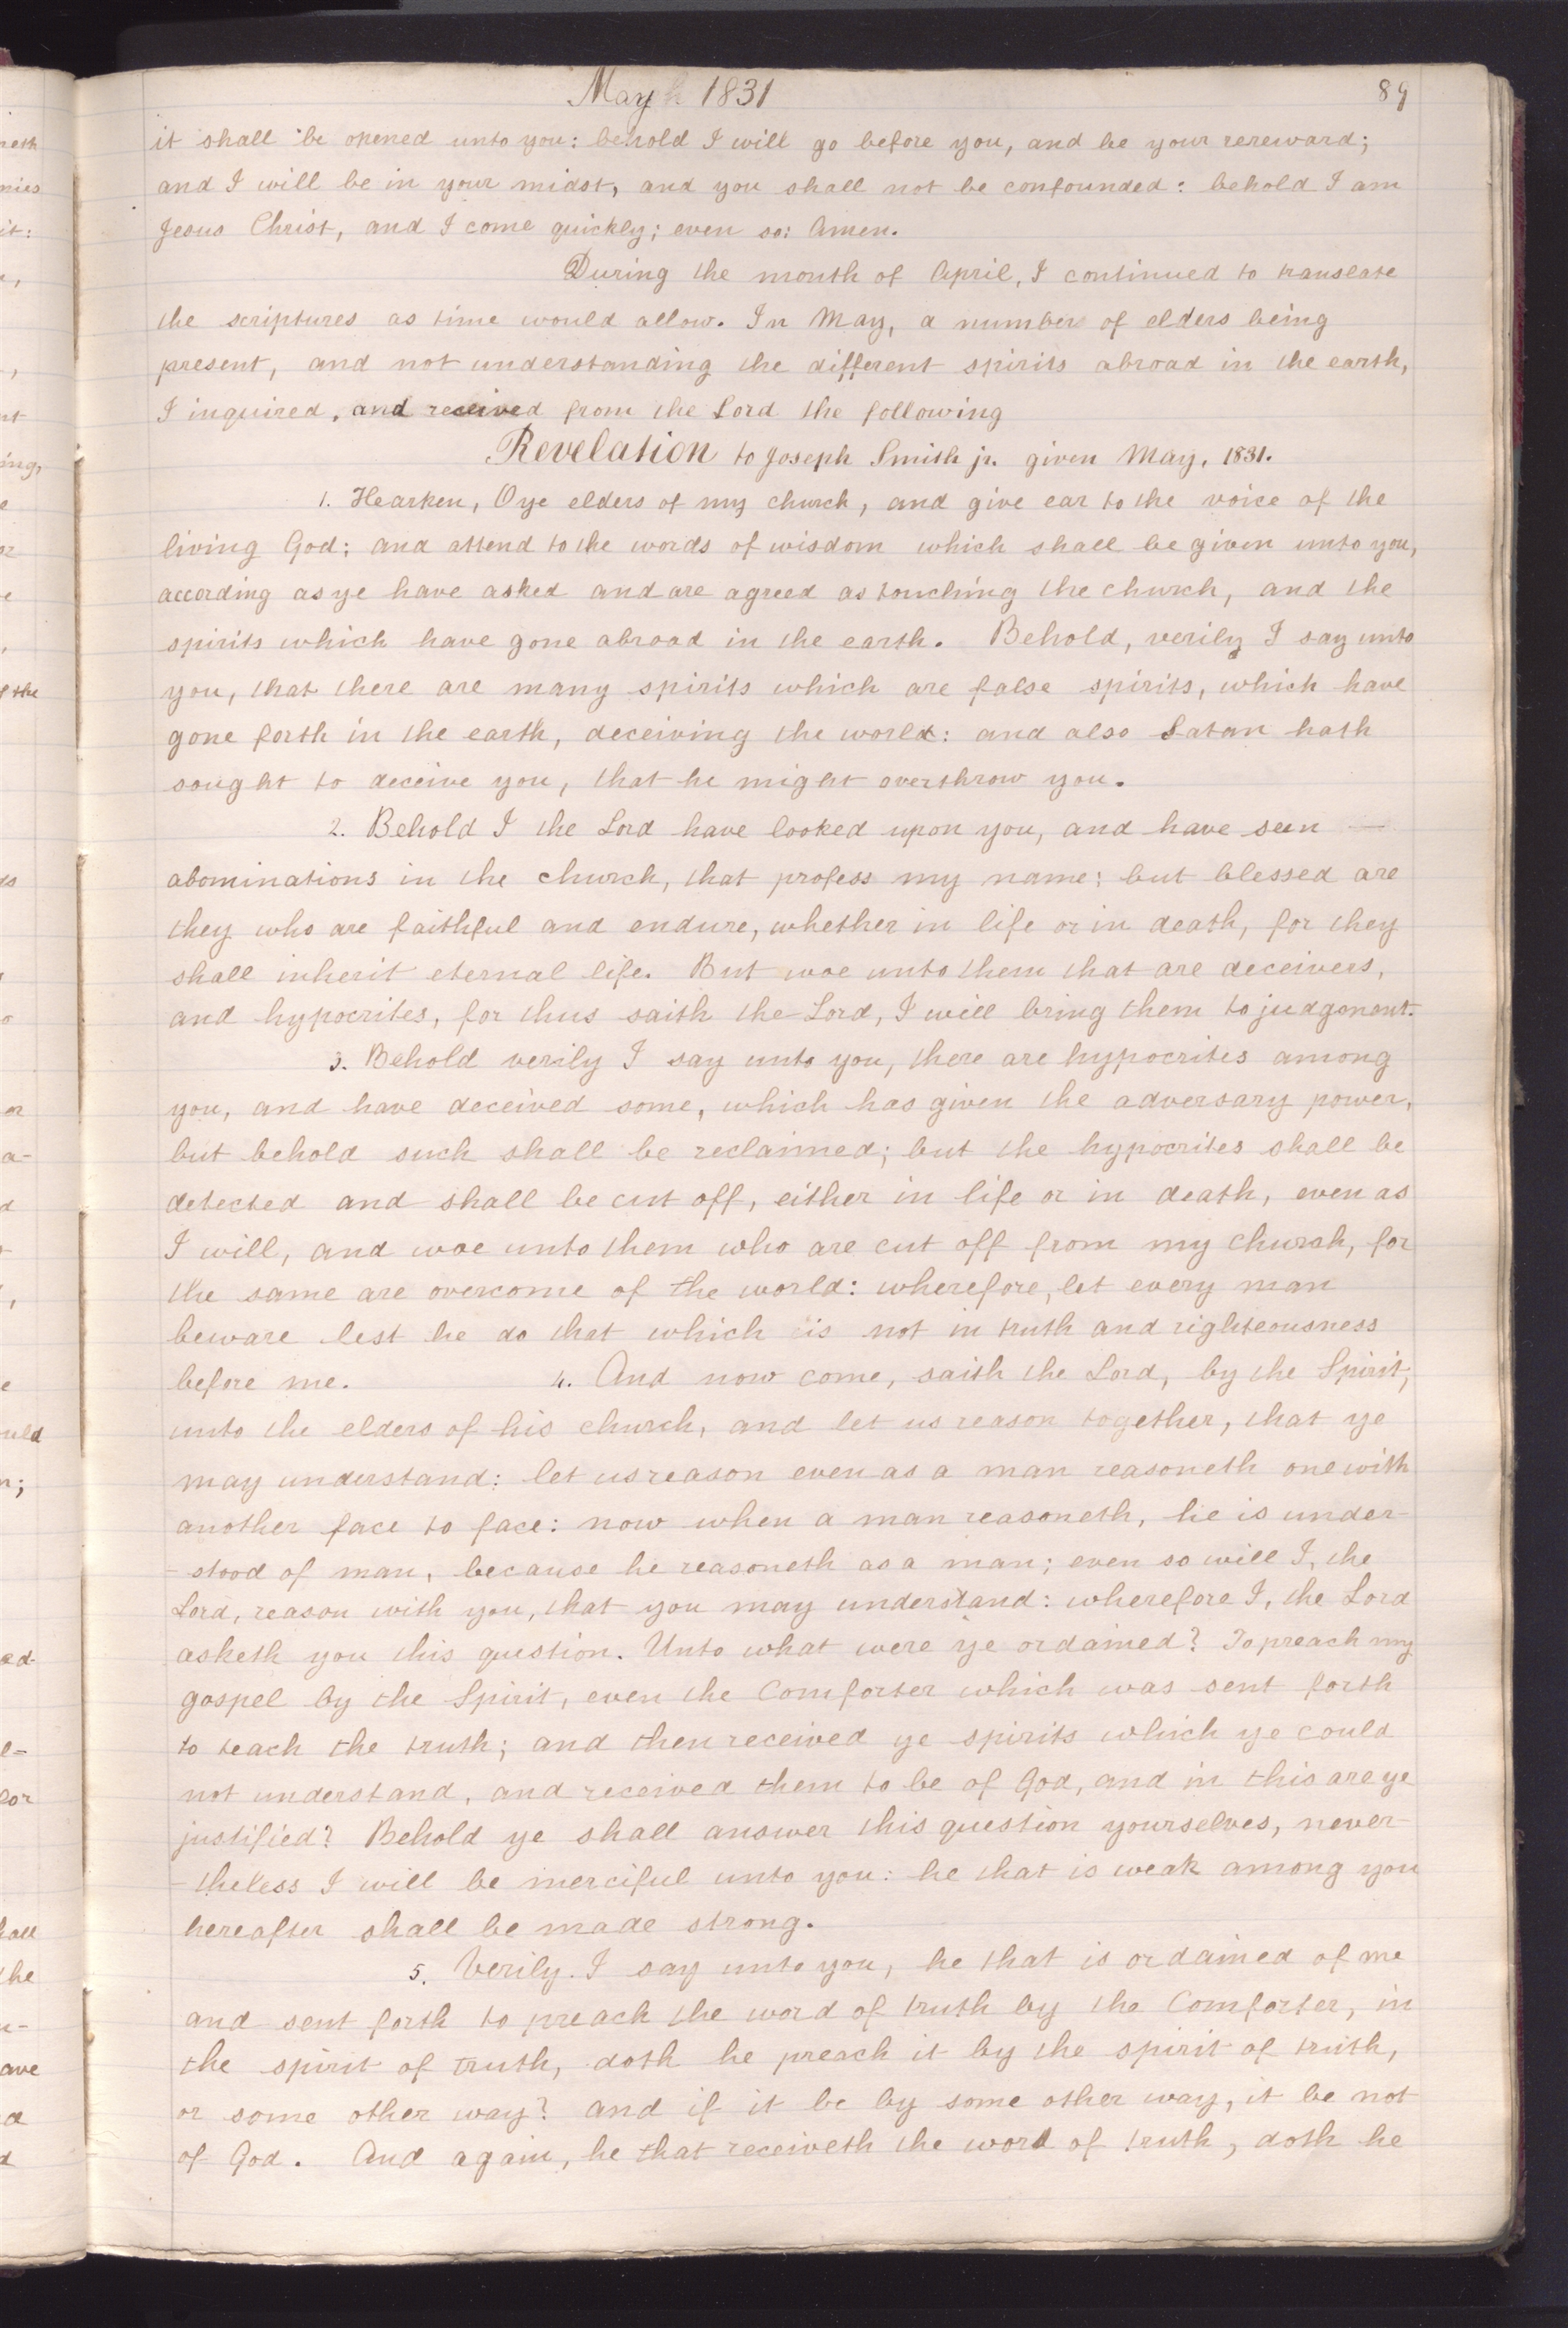 May 1831
89
it shall be opened unto you: behold I will go before you, and be your rereward;
and I will be in your midst, and you shall not be confounded: behold I am
Jesus Christ, and I come quickly; even so: Amen.
During the month of April, I continued to translate
the scriptures as time would allow. In May, a number of elders being
present, and not understanding the different spirits abroad in the earth,
I inquired, and received from the Lord the following
Revelation to Joseph Smith jr. given May, 1831.
1. Hearken, O ye elders of my church, and give ear to the voice of the
living God; and attend to the words of wisdom which shall be given unto you,
according as ye have asked and are agreed as touching the church, and the
spirits which have gone abroad in the earth. Behold, verily I say unto
you, that there are many spirits which are false spirits, which have
gone forth in the earth, deceiving the world: and also Satan hath
sought to deceive you, that he might overthrow you.
2. Behold I the Lord have looked upon you, and have seen —
abominations in the church, that profess my name: but blessed are
they who are faithful and endure, whether in life or in death, for they
shall inherit eternal life. But woe unto them that are deceivers,
and hypocrites, for thus saith the Lord, I will bring them to judgement.
3. Behold verily I say unto you, there are hypocrites among
you, and have deceived some, which has given the adversary power,
but behold such shall be reclaimed; but the hypocrites shall be
detected and shall be cut off, either in life or in death, even as
I will, and woe unto them who are cut off from my church, for
the same are overcome of the world: wherefore, let every man
beware lest he do that which is not in truth and righteousness
before me. 4. And now come, saith the Lord, by the Spirit,
unto the elders of his church, and let us reason together, that ye
may understand: let us reason even as a man reasoneth one with
another face to face: now when a man reasoneth, he is under-
-stood of man, because he reasoneth as a man; even so will I, the
Lord, reason with you, that you may understand: wherefore I, the Lord
asketh you this question. Unto what were ye ordained? To preach my
gospel by the Spirit, even the Comforter which was sent forth
to teach the truth; and then received ye spirits which ye could
not understand, and received them to be of God, and in this are ye
justified? Behold ye shall answer this question yourselves, never-
-theless I will be merciful unto you: he that is weak among you
hereafter shall be made strong.
5. Verily I say unto you, he that is ordained of me
and sent forth to preach the word of truth by the Comforter, in
the spirit of truth, doth he preach it by the spirit of truth,
or some other way? and if it be by some other way, it be not
of God. And again, he that receiveth the word of truth, doth he